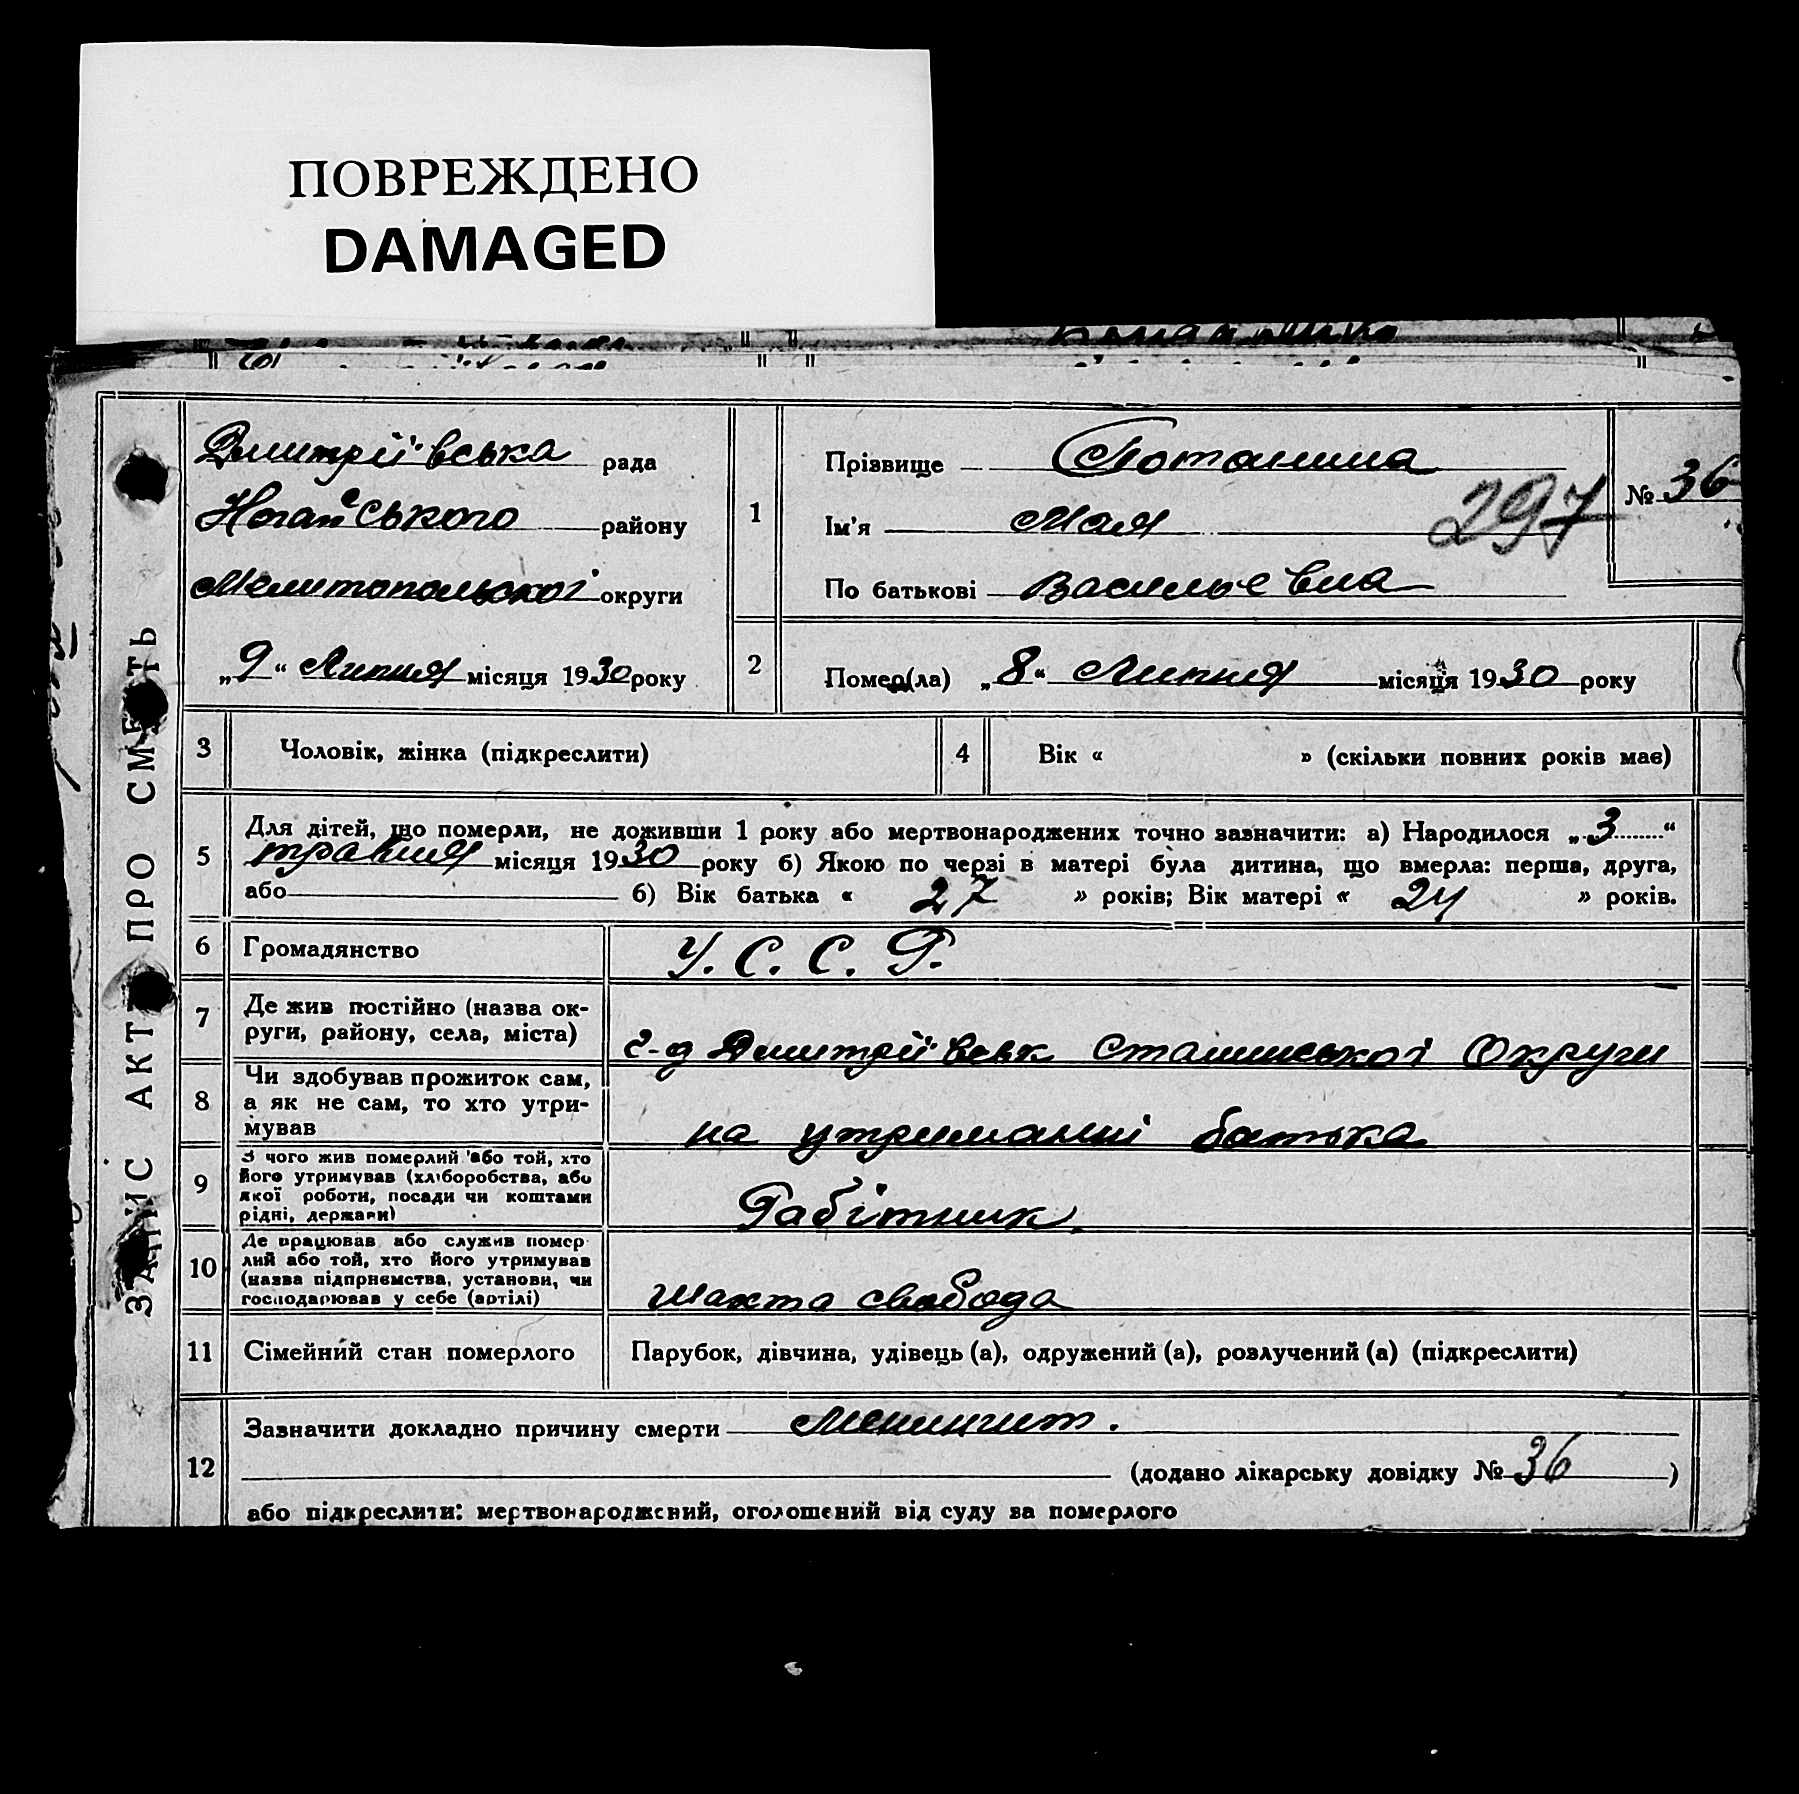 ПОВРЕЖДЕНО
DAMAGED
ЗАПИС АКТ ПРО СМЕРТЬ
Дмитріївська рада
Ногайського району
Мелитопольскої округи
„9“ Липня місяця 1930 року
1
Прізвище Потанина
Ім'я Мая
297
По батькові Васильевна
№ 36
2
Помер(ла) „8“ Липня місяця 1930 року
3 Чоловік, жінка (підкреслити)
4 Вік « » (скільки повних років має)
5
Для дітей, що померли, не доживши 1 року або мертвонароджених точно зазначити: а) Народилося „3“
травня місяця 1930 року б) Якою по черзі в матері була дитина, що вмерла: перша, друга,
або б) Вік батька « 27 » років; Вік матері « 24 » років.
6 Громадянство У. С. С. Р.
7
Де жив постійно (назва ок-
руги, району, села, міста)
г-д Дмитріївськ Сталинської Округи
8
Чи здобував прожиток сам,
а як не сам, то хто утри-
мував
на утриманні батька
9
З чого жив померлий або той, хто
його утримував (хліборобства, або
якої роботи, посади чи коштами
рідні, держави)
Рабітник
10
Де працював або служив помер-
лий або той, хто його утримував
(назва підприємства, установи, чи
господарював у себе (артілі)
Шахта свобода
11 Сімейний стан померлого Парубок, дівчина, удівець (а), одружений (а), розлучений (а) (підкреслити)
12
Зазначити докладно причину смерти Менингит.
(додано лікарську довідку № 36 )
або підкреслити: мертвонароджений, оголошений від суду за померлого